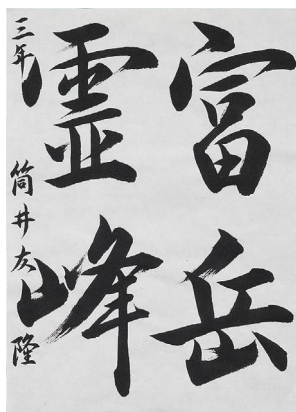 富岳
霊峰
三年 筒井友隆